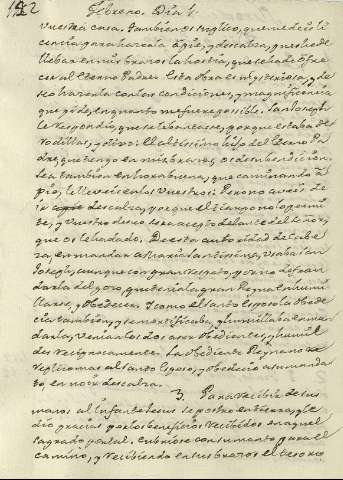 142
Febrero. Dia 1.
vuestra casa. Tambien os suplico, que me deis li
cencia para hacerla à piè, y descalza, pues he de
llebar en mis brazos la hostia, que se ha de ofre
cer al Eterno Padre. Esta obra es mysteriosa, y de
seo hacerla con las condiciones, y magnificencia
que pide, en quanto me fuere possible. San Joseph
le respondiò, que se lebantasse, porque estaba de
rodillas, y dixo: El altissimo hijo del Eterno Pa
dre, que tengo en mis brazos, os dè su bendicion.
Sea tambien enhorabuena, que caminando à
piè, le lleveis en los vuestros: Pero no aveis de
ir descalza, porque el tiempo no lo permi
te, y vuestro deseo serà acepto delante del Señor,
que os le ha dado. De esta autoridad de cabe
za, en mandar à Maria Santissima, usaba San
Joseph, aunque con gran respeto, por no defrau
darla del gozo, que tenia la gran Reyna en humi
llarse, y obedecer. Y como el Santo Esposo la obede
cia tambien, y se mortificaba, y humillaba en man
darla, venian los dos à ser obedientes, y humil
des reciprocamente. La obediente Reyna no re
plicò mas al Santo Esposo, y obedeciò à su manda
to, en no ir descalza.
3. Para recibir de sus
manos al Infante Jesus se postrò en tierra, y le
diò gracias por los beneficios recibidos en aquel
sagrado portal. Cubriose con su manto para el
camino, y recibiendo en sus brazos el tesoro